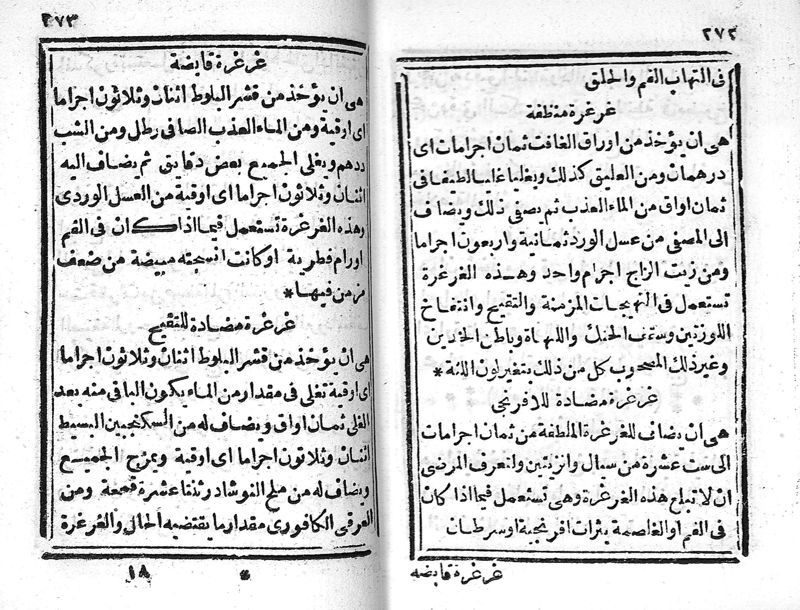 ٢٧٢
فى التهاب الفم والحلق
غرغرة منظفة
هى ان يؤخذ من اوراق الغافت ثمان اجرامات اى
درهمان ومن العليق كذلك ويغليا غليا لطيفا فى
ثمان اواق من الماء العذب ثم يصفى ذلك ويضاف
الى المصفى من عسل الورد ثمانية واربعون اجراما
ومن زيت الزاج اجرام واحد وهذه الغرغرة
تستعمل فى التهيجات المزمنة والتقيح وانتفاخ
اللوزتين وسقف الحنك واللهاة وباطن الخدين
وغير ذلك المصحوب كل من ذلك بتغير لون اللثه *
غرغرة مضادة للافرنجى
هى ان يضاف للغرغرة الملطفة من ثمان اجرامات
الى ست عشرة من سيال وانزيتين ولتعرف المرضى
ان لا تبلع هذه الغرغرة وهى تستعمل فيما اذا كان
فى الفم او الغلصمة بثرات افرنجية او سرطان
غرغرة قابضه
٢٧٣
غرغرة قابضة
هى ان يؤخذ من قشر البلوط اثنان وثلاثون اجراما
اى اوقية ومن الماء العذب الصافى رطل ومن الشب
درهم ويغلى الجميع بعض دقايق ثم يضاف اليه
اثنان وثلاثون اجراما اى اوقية من العسل الوردى
وهذه الغرغرة تستعمل فيما اذا كان فى الفم
اورام فطرية او كانت انسجته مبيضة من ضعف
مزمن فيها *
غرغرة مضادة للتقيح
هى ان يؤخذ من قشر البلوط اثنان وثلاثون اجراما
اى اوقية تغلى فى مقدار من الماء يكون الباقى منه بعد
الغلى ثمان اواق ويضاف له من السكنجبين البسيط
اثنان وثلاثون اجراما اى اوقية ويمزج الجميع
ويضاف له من ملح النوشادر ثنتا عشرة قمحة ومن
العرقى الكافورى مقدار ما يقتضيه الحال والغرغرة
* ١٨